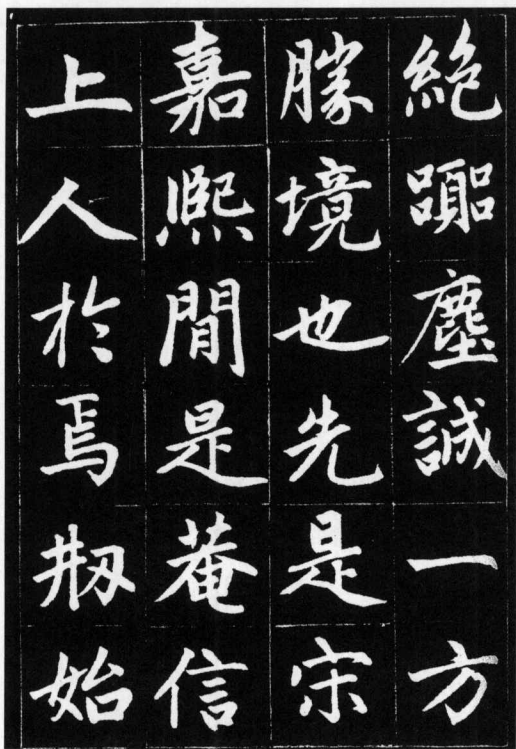 絶囂塵誠一方
勝境也先是宋
嘉熙閒是菴信
上人於焉刱始